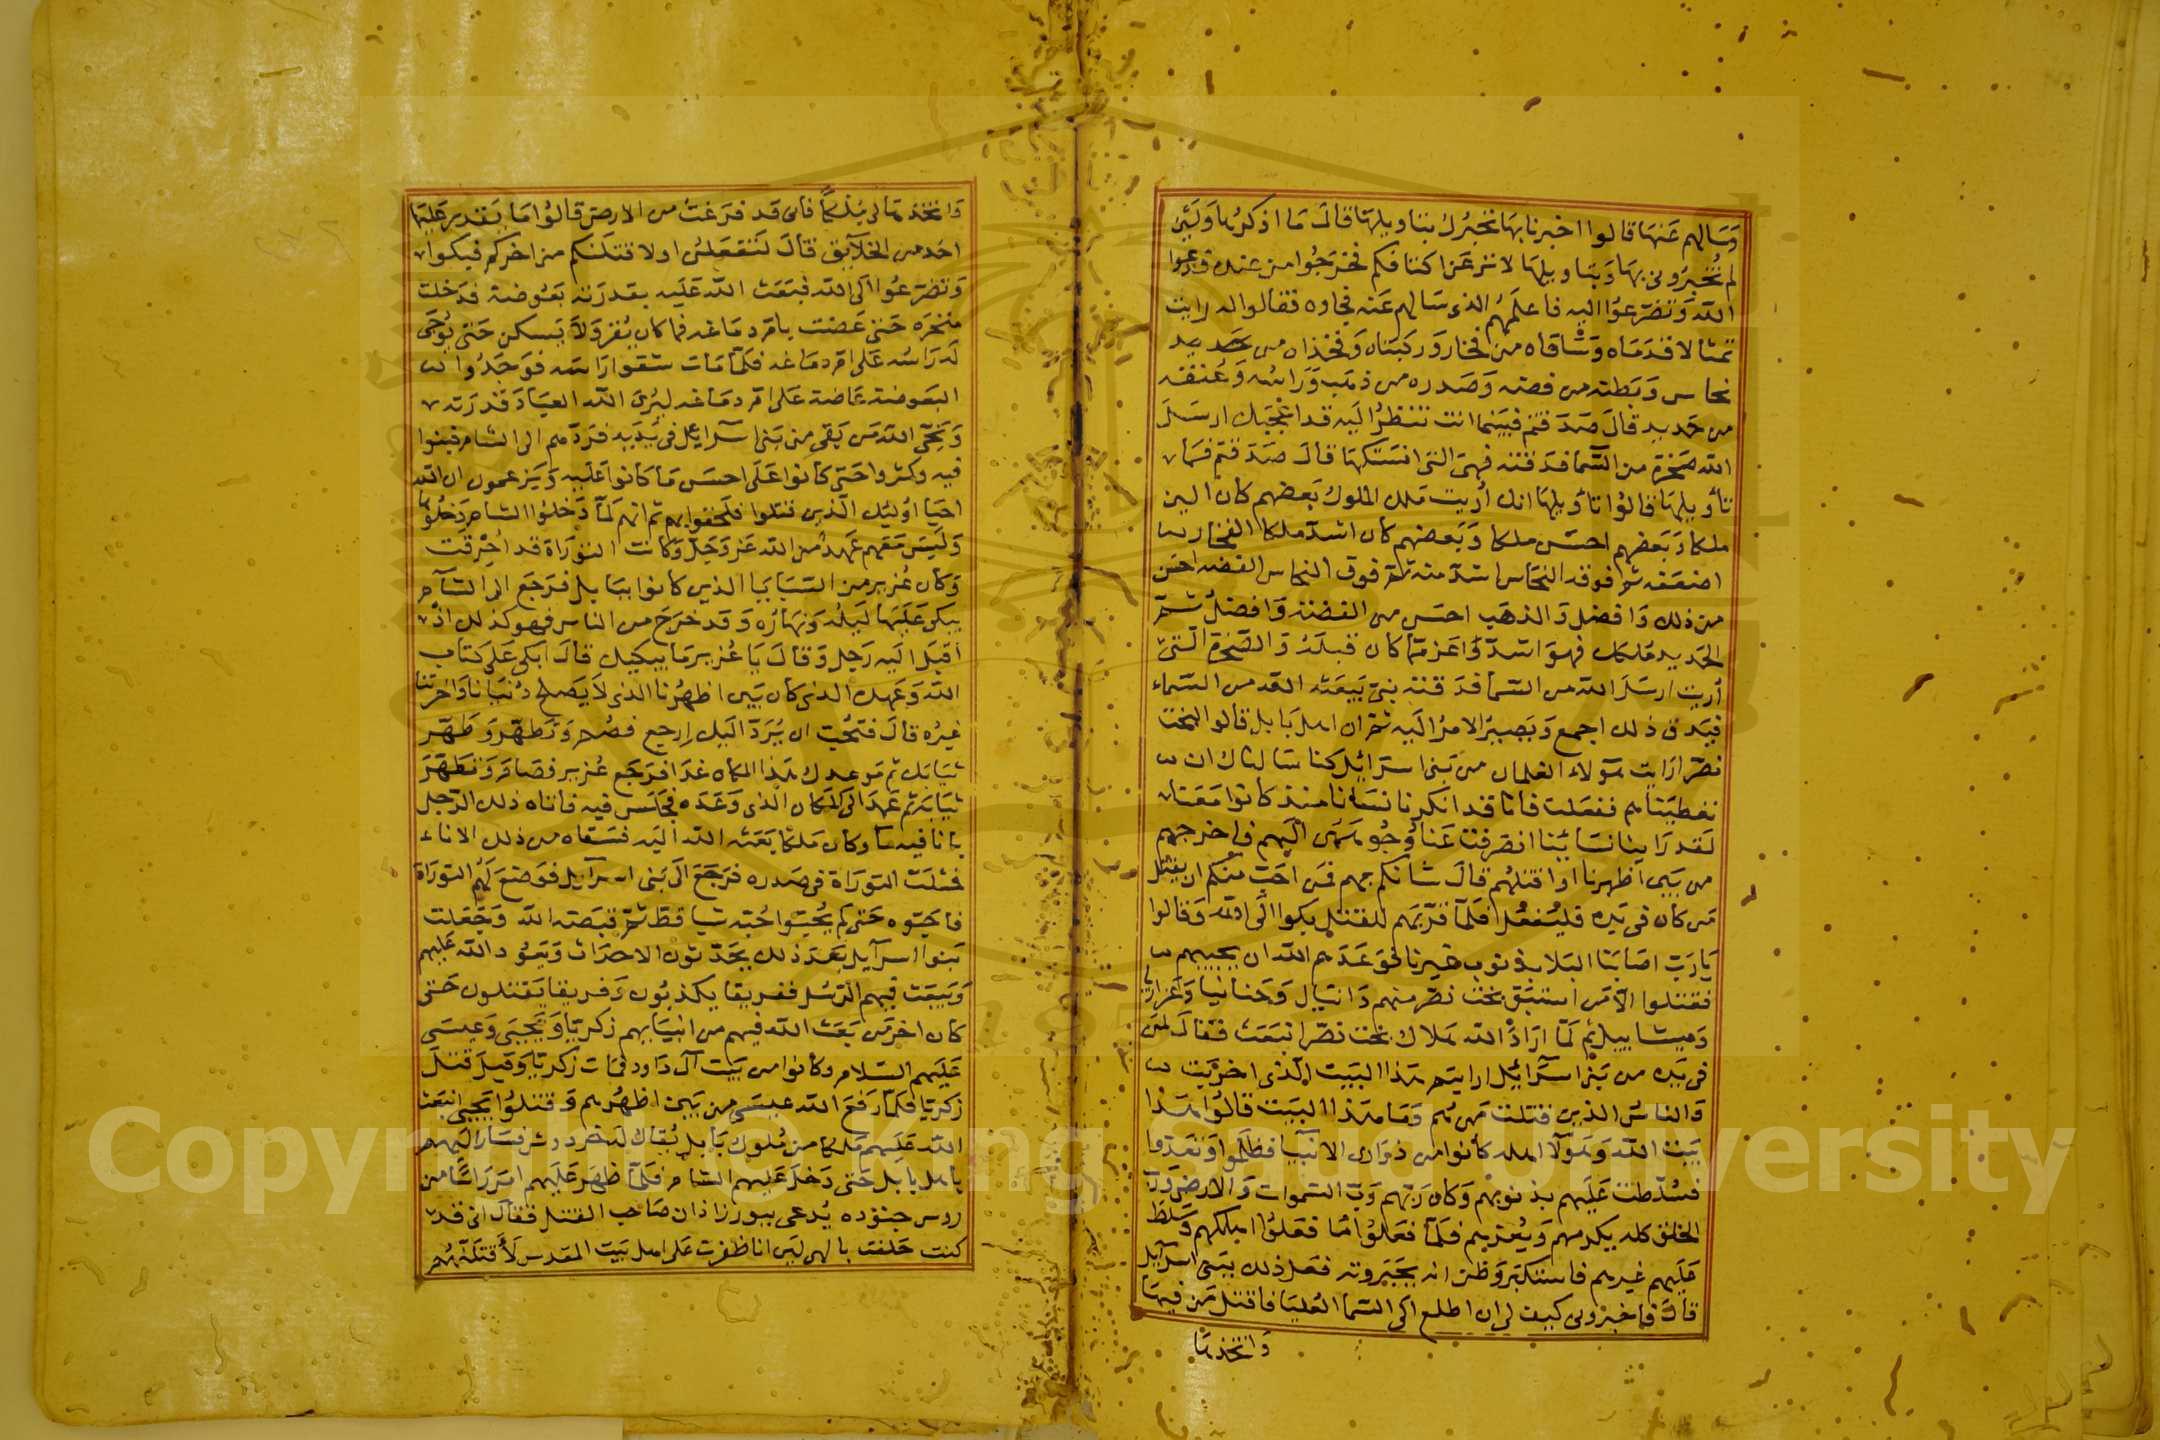 وَسَالهم عَنهَا قالوا اخبرنا بهَا نخبرك بتاويلهَا قالَ مَا اذكرُها وَلَئِن
لم تُخبِرَونى بهَا وَبتاويلهَا لانزعَن اكتافكم فخرَجُوا من عنده فدعوا
الله وَتضرّعوُا اليه فاعلمَهُم الذى سَالهم عَنه فجاوه فقالوا له رايت
تمثالا قدمَاه وَسَاقاه من فخار وَركبتاه وَفخذاه من
نحاس وَبَطنه من فضه وَصَدره من ذهَب وَرَاسُه وَعُنقه
من حَديد قالَ صَدَقتم فبَينما انت تنظرُ اليه قد اعجَبك ارسَلَ
الله صَخرة من السّما فدَقته فهىَ التى انسَتكهَا قالَ صَدَقتم فمَا
تأويلهَا قالوُا تأويلهَا انك اُريت مُلك الملوك بَعضهم كان الين
ملكا وَبَعضهم احسَن ملكا وَبَعضهم كان اشدّ ملكا الفخار
اضعَفه ثم فوقه النحَاس اشدّ منه ثم فوق النحاس الفضه احسَن
من ذلك وَافضل وَالذهَب احسَن من الفضة وَافضلُ ثمّ
الحَديد مُلكك فهوَ اشدّ وَاعَز ممّا كان قبلهُ وَالصّخرة الّتى
اُريت ارسَلَ الله من السّما فدَقته نبىّ يَبعَثه الله من السّماء
فيَدق ذلك اجمع وَيَصيرُ الامرُ اليه ثمّ ان اهل بَابل قالوا لبخت
نصّر ارَايت هَؤلاء الغلمان من بَنى اسرَائيل كنا سَالناك ان
تعطيَناهم ففعَلت فانا قد انكرنا نسَانا منذ كانوا مَعَنا
لقد رَاينا نسَائنا انصَرفت عَنا وُجُوههنَّ اليهم فاخرجهم
من بَين اظهرنا او اقتلهُم قالَ شانكم بهم فمَن احَبّ منكم ان يقتل
مَن كان فى يَده فليَفعَل فلمّا قرّبهَم للقتل بكوا الَى الله وَقالوا
يَا رَبّ اصَابَنا البَلا بذنوب غيرنا فوَعَدَهم الله ان يجيبهم
فقتلوا الاّ مَن استبقى بخت نصّر منهم دَانيَال وَحنانيا وَعزاريا
وَميشاييل ثم لمّا ارَادَ الله هَلاك بخت نصّر انبعَث فقالَ لمَن
فى يَده من بَنى اسرآئيل ارايتم هَذا البَيت الّذى اخرَبت
وَالناسُ الذين قتلت مَن هُم وَمَا هَذا البيَت قالوُا هَذا
بَيت الله وَهَؤلآ اهله كانوا من ذرَارى الانبيَآ فظلمُوا وَتعَدّوا
فسُلّطت عَلَيهم بذنوبهم وَكان رَبّهم رَبّ السّموات وَالارض وَرَبّ
الخلق كله يكرمهم وَيُعزهم فلمّا فعَلوُا مَا فعَلوُا اهلكهم وَسَلط
عَلَيهم غيرهم فاستكبر وَظن انه بجَبَروته فعَل ذلك ببَنى اسرآئيل
قالَ فاخبرونى كيف لى ان اطلع الَى السّما العُليَا فاقتل مَن فيهَا
وَاتخذهَا
وَاتخذهَا لى مُلكًا فانى قد فرَغت من الارض قالوُا مَا يَقدر عَليَهَا
احَد من الخلآيق قالَ لتَفعَلنّ او لاقتلنّكم من اخركم فبكوا
وَتضرّعوُا الَى الله فبَعَث الله عَلَيه بقدرَته بَعُوضة فدَخلت
منخرَه حَتى عَضت بامّ دمَاغه فما كان يُقر وَلاَ يَسكن حَتى يُوجَى
لهَ رَاسُه عَلى امّ دمَاغه فلمّا مَات شقوا رَاسَه فوَجَدُوا
البعَوضة عَاضة عَلى امّ دمَاغه ليُرىَ الله العبَاد قدرَته
وَنجّى الله مَن بَقى من بَنى اسرآئيل فى يَدَيه فرَدّهم الى الشام فبنوا
فيه وكثروا حَتى كانوا عَلَى احسَن مَا كانوا عَلَيه وَيَزعمون ان الله
احيَا اوُلئك الّذين قتلوا فلحقوا بهم ثم انهم لمّا دَخلوُا الشام دَخلوُهَا
وَلَيسَ مَعَهم عَهدٌ من الله عَز وَجَلّ وَكانت التورَاة قد اُحرقت
وَكان عُزير من السّبَايَا الذين كانوا ببَابل فرَجَع الى الشآم
يبكى عَلَيهَا لَيلهُ وَنهَارَه وَقد خرَجَ من الناس فهو كذلك اذ
اقبلَ اليه رَجل وَقالَ يَا عُزير مَا يبكيك قالَ ابكى عَلَى كتاب
الله وَعَهده الذى كان بَين اظهُرنا الذى لاَ يَصلح دُنيَانا وَاخرَتنا
غيرُه قالَ فتحُبّ ان يُرَدّ اليك ارجع فصُم وَتَطهّر وَطهّر
ثيَابك ثم مَوعدك هَذا المكان غدَا فرَجَع عُزير فصَام وَتطهّرَ
ثيَابه ثم عَهَد الَى المكان الذى وَعَدَه فجَلسَ فيه فاتاه ذلك الرّجل
بانا فيه مآ وكان ملكا بَعَثه الله اليَه فسَقاه من ذلك الاناء
فمثلت التورَاة فى صَدره فرَجَعَ الَى بَنى اسرآيل فوَضعَ لهُم التورَاة
فاحَبّوه حَتى لم يُحبّوا حُبّه شيا قطّ ثم قبَضه الله وَجَعَلت
بَنوا اسرآيل بَعَد ذلك يحَدّثون الاحدَاث وَيَعوُد الله عَلَيهم
وَيبعَث فيهم الرّسُل ففريقا يكذبُون وَفريقا يَقتلون حَتى
كان اخر مَن بَعَث الله فيهم من انبيَايهم زكريّا وَيَحيَى وَعيسَى
عَلَيهم السّلام وكانوا من بَيت آل دَاود فمات زكريّا وَقيلَ قتلَ
زكريّا فلمّا رَفعَ الله عيسَى من بَين اظهُرهم وَقتلوُا يَحيى انبعَث
الله عَلَيهم مَلكا من مُلوك بَابل يُقال لَه خردوش فسَار اليهم
باهل بابل حَتى دَخلَ عَلَيهم الشام فلمّا ظهَرَ عَلَيهم امرَ رَاسًا من
روس جنوده يُدعى ببورزاذان صَاحب القتل فقالَ انى قد
كنت حَلفت بالهى لَين انا ظفرت عَلى اهل بَيت المقدس لأَقتلَنّهُم